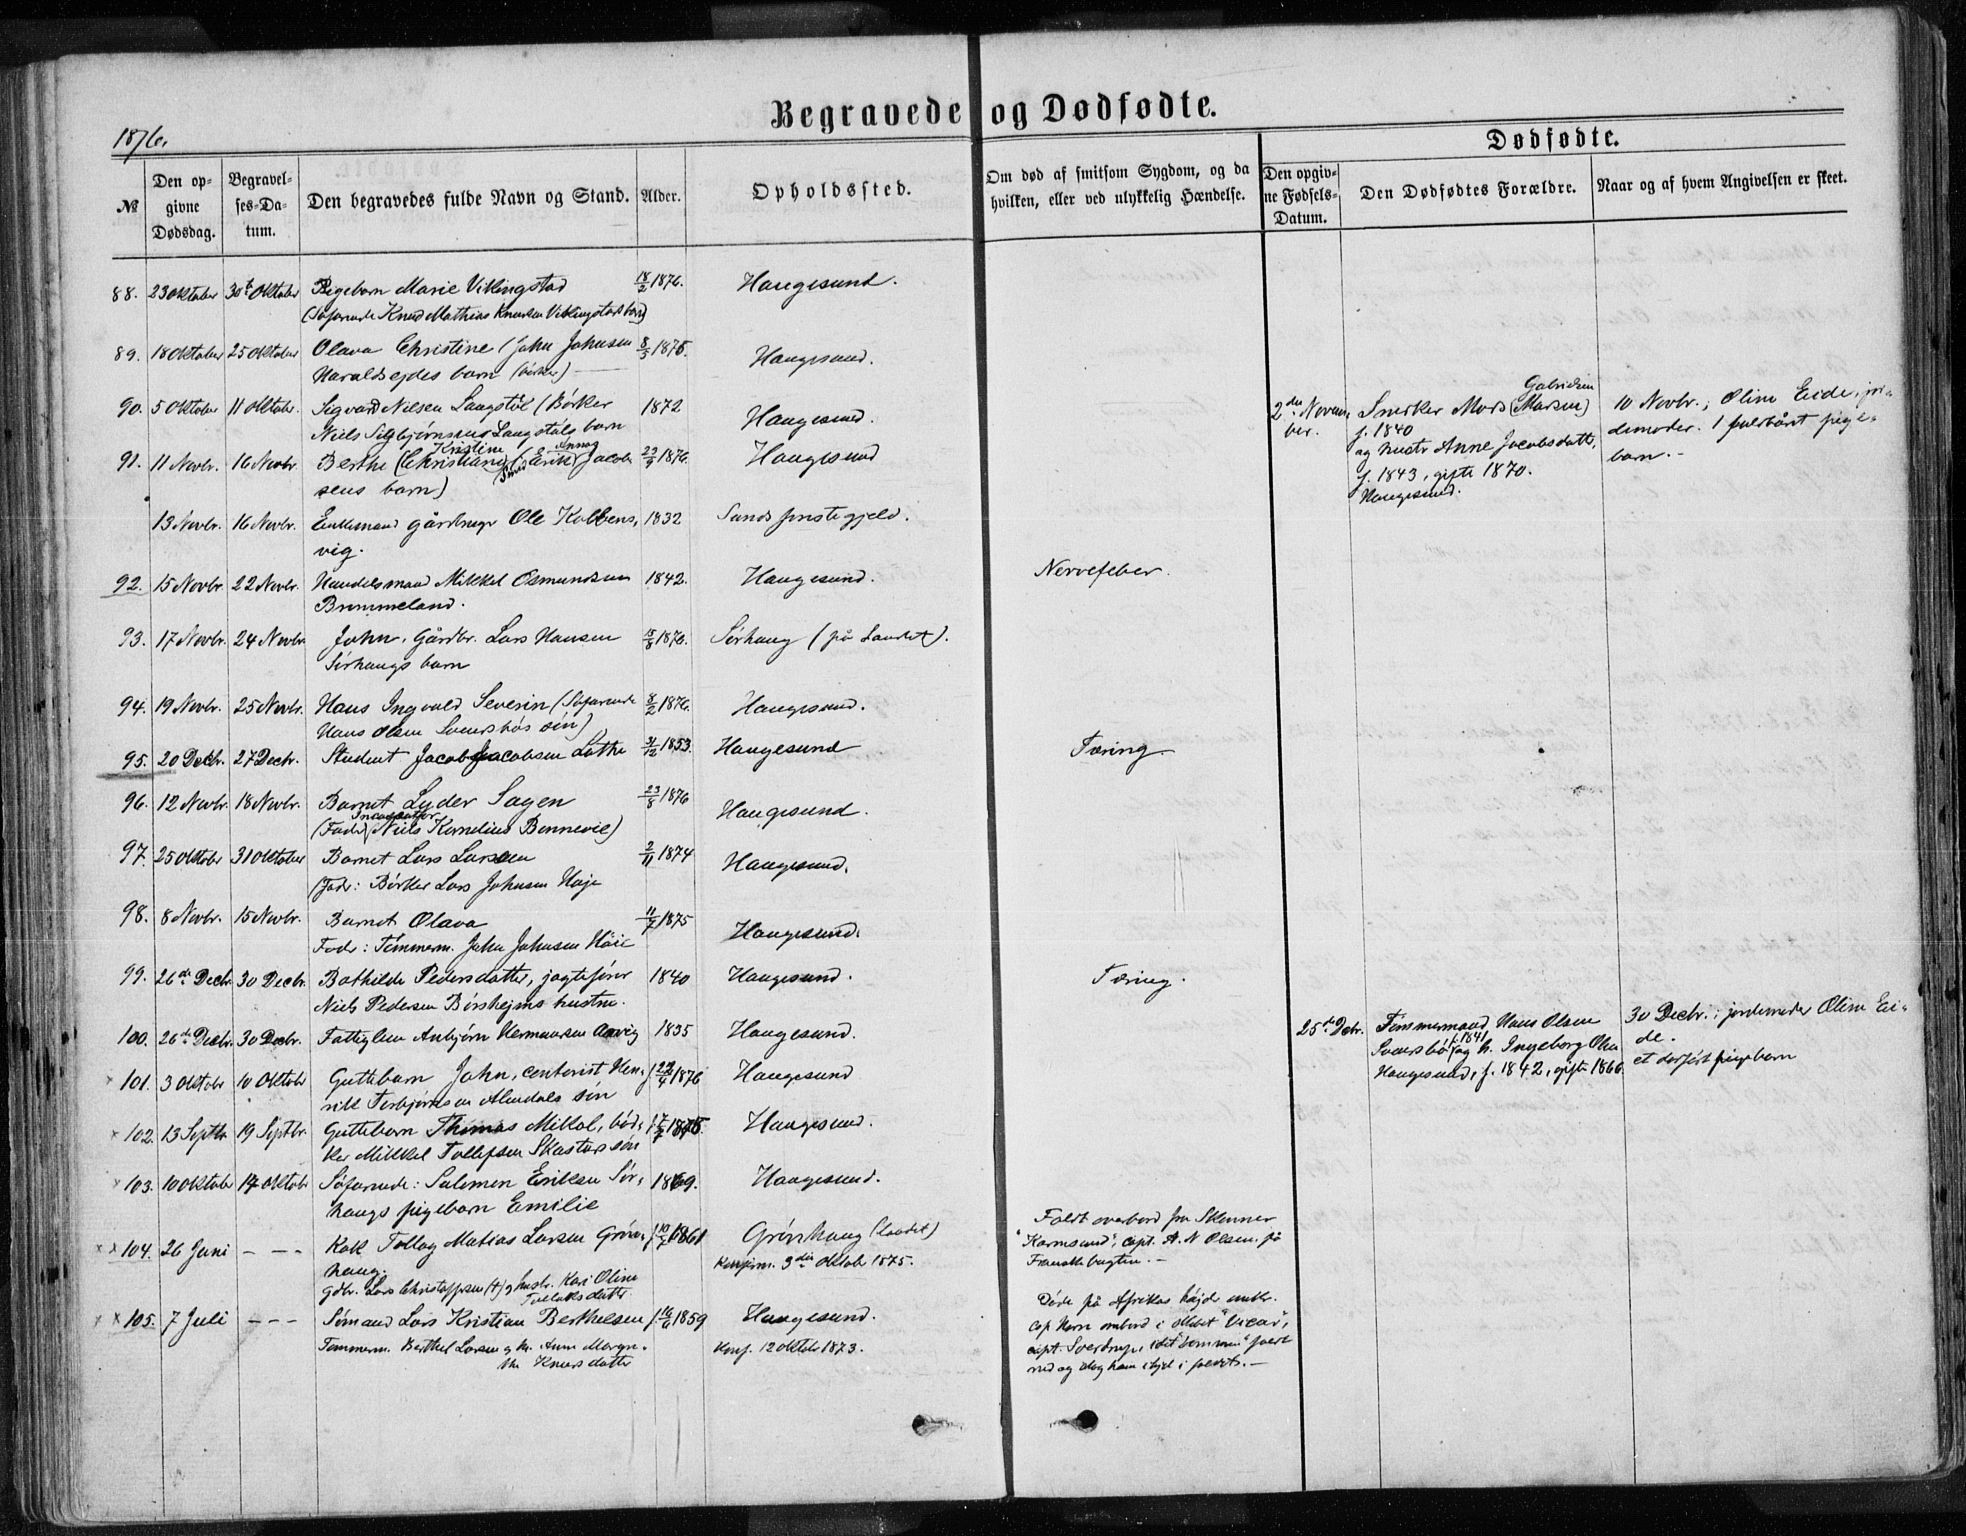 Begravede og Dødfødte.
1876.
Dødfødte.
№
Den opgivne Dødsdag.
Begravelses-Datum.
Den begravedes fulde Navn og Stand.
Alder.
Opholdssted.
Om død af smitsom Sygdom, og da hvilken, eller ved ulykkelig Hændelse.
Den opgivne Fødsels-Datum.
Den Dødfødtes Forældre.
Naar og af hvem Angivelsen er skeet.
88. 23 Oktober 30te Oktober Pigebarn Marie Vikingstad 18/2 1876. Haugesund.
(Søfarende Knud Mathias Knudsen Vikingstads barn)
89. 18 Oktober 25 Oktober Olava Christine (John Johnsen 8/5 1875. Haugesund.
Haraldsejdes barn
90. 5 Oktober 11 Oktober. Sigvard Nielsen Langstøl (Bødker 1872 Haugesund.
Niels Langstøls barn
91. 11 Novbr. 16 Novbr. Berthe (Christiane) Kristine (Erik Jacob- 23/9 1876. Haugesund
sens barn)
13 Novbr. 16 Novbr. Enkemand gårdbruger Ole Kolbens- 1832 Sands præstegjeld.
vig.
92. 15 Novbr. 22 Novbr. Handelsmand Mikkel Osmundsen 1842. Haugesund. Nervefeber.
Brommeland.
93. 17 Novbr. 24 Novbr. John, Gårdbr. Lars Hansen 15/8 1876. Sørhaug (på Landet).
Sørhaugs barn
94. 19 Novbr. 25 Novbr. Hans Ingvald Severin (Søfarende 8/2 1876. Haugesund.
Hans Olsen Sveersbøs søn)
95. 20 Decbr. 27 Decbr. Student Jacob Jacobsen Lothe 31/12 1853. Haugesund Tæring.
96. 12 Novbr. 18 Novbr. Barnet Lyder Sagen 23/8 1876 Haugesund.
(Fader Niels Kornelius Bonnevie)
97. 25 Oktober 31 Oktober Barnet Lars Larsen 2/11 1874 Haugesund.
(Fader: Bødker Lars Johnsen Høje
98. 8 Novbr. 15 Novbr. Barnet Olava 11/7 1875 Haugesund.
Fader: Tømmerm. John Johnsen Høie
99. 26de Decbr. 30 Decbr. Bothilde Pedersdatter, jagtefører 1840 Haugesund. Tæring.
Niels Pedersen Børshejms hustru.
100. 26de Decbr. 30 Decbr. Fattiglem Anbjørn Hermansen 1835 Haugesund.
101. 3 Oktobr 10 Oktobr Guttebarn John, Hen- f. 22/4 1876 Haugesund
rik Torbjørnsen Almdals søn
102. 13 Septbr 19 Septbr. Guttebarn Thomas Mikal, bød- 1875. Haugesund.
ker Mikkel Tollefsen søn
103. 10 Oktobr 17 Oktobr Søfarende: Salomon Eriksen Sør- 1869. Haugesund.
haugs pigebarn Emilie
104. 26 Juni - - - Kok Tollag Matias Larsen Grøn- 1861 Grønhaug (Landet)
haug. Konfirm. 3die Oktobr 1875.
Gdbr. Lars Christoffersen (+) og hustr. Kari Oline
Tollaksdatter
Faldt overbord fra Skonner
"Karmsund", capt. A. N. Olsen på
105. 7 Juli - - - Sømand Lars Kristian Berthelsen f. 16/6 1859 Haugesund.
Tømmerm. Berthel Larsen og h. Anne Margre- Konf. 12 Oktbr 1873.
the Knudsdatter
Døde på Afrikas højde
Cap Horn ombord i skibet "Vicar",
capt. Sverdrup, idet bommen faldt
ned og slog ham ihjel
2den Novem-
ber.
Gabrielsen
Snekker Mons (Monsen)
f. 1840
og hustr Anne Jacobsdatt.
f. 1843, gifte 1870.
Haugesund.
10 Novbr.; Oline Eide, jor-
demoder. 1 fuldbårent pige-
barn.-
25de Debr.
Tømmermand Hans Olsen
Sveersbø f. 1841 og h. Ingeborg
Haugesund, f. 1842, gifte 1866
30 Decbr.; jordemoder Oline Ei-
de.
et pigebarn